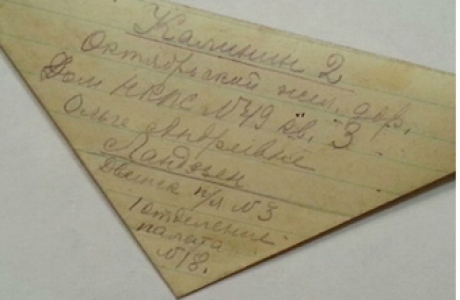 Калинин 2
Октябрьской жел. дор.
Дом НКПС № 49 кв. 3
Ольге Андреевне
Ландзен
Двинка п/я № 3
1 отделение
палата
№ 18.